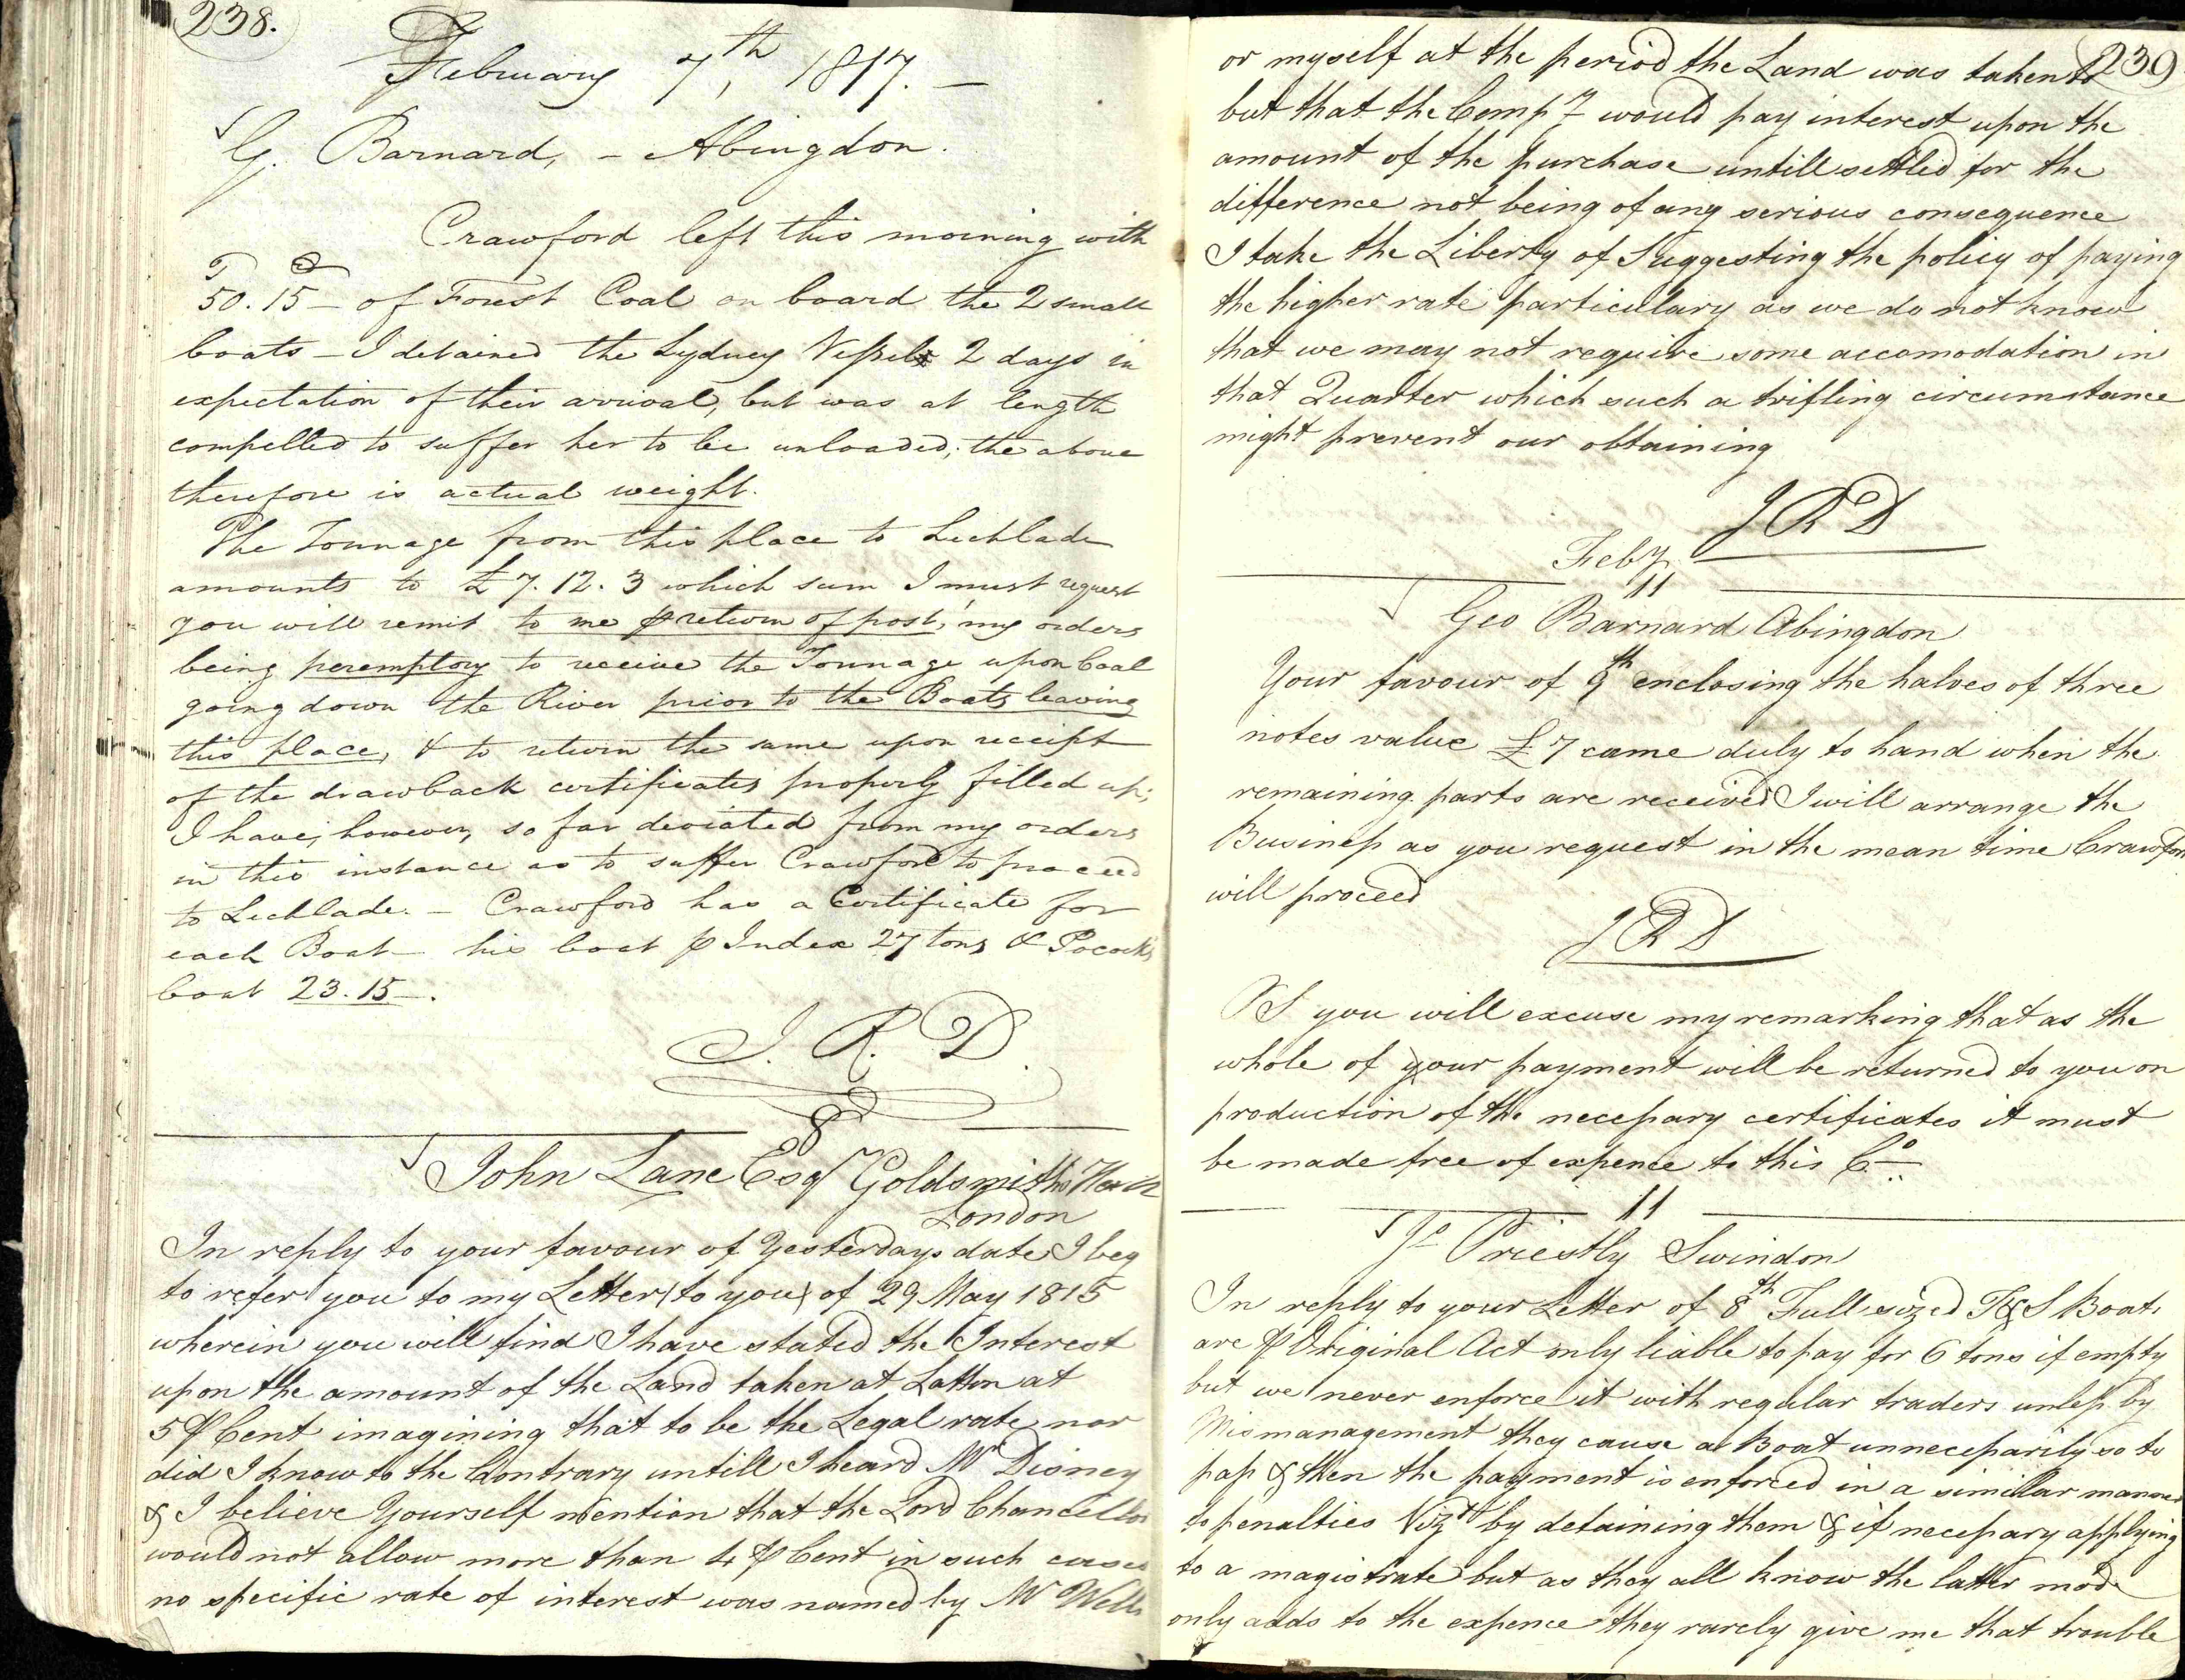 238.
February 7th, 1817. —
G. Barnard, - Abingdon.
Crawford left this morning with
T C
50.15 - of Forest Coal on board the 2 small
boats - I detained the Lydney Vessel 2 days in
expectation of their arrival, but was at length
compelled to suffer her to be unloaded; the above
therefore is actual weight.
The Tonnage from this place to Lechlade
amounts to £7.12.3 which sum I must request
you will remit to me ⅌ return of post, my orders
being peremptory to receive the Tonnage upon Coal
going down the River prior to the Boats leaving
this place, & to return the same upon receipt
of the drawback certificates properly filled up;
I have, however, so far deviated from my orders
in this instance as to suffer Crawford to proceed
to Lechlade. - Crawford has a Certificate for
each Boat - his boat ⅌ Index 27 tons & Pococks
boat 23.15 -.
J. R. D.
8
John Lane Esqr Goldsmiths Hall
London
In reply to your favour of Yesterdays date I beg
to refer you to my Letter (to you) of 29 May 1815
wherein you will find I have stated the Interest
upon the amount of the Land taken at Latton at
5 ⅌ Cent imagining that to be the Legal rate nor
did I know to the Contrary untill I heard Mr Disney
& I believe Yourself mention that the Lord Chancellor
would not allow more than 4 ⅌ Cent in such cases
no specific rate of interest was named by Mr Wells
239
or myself at the period the Land was taken to
but that the Compy would pay interest upon the
amount of the purchase untill settled for the
difference not being of any serious consequence
I take the Liberty of Suggesting the policy of paying
the higher rate particulary as we do not know
that we may not require some accomodation in
that Quarter which such a trifling circumstance
might prevent our obtaining
JRD
Feby
11
Geo Barnard Abingdon
Your favour of 9th enclosing the halves of three
notes value £7 came duly to hand when the
remaining parts are received I will arrange the
Business as you request in the mean time Crawford
will proceed
JRD
PS you will excuse my remarking that as the
whole of your payment will be returned to you on
production of the necessary certificates it must
be made free of expence to this Co
11
Jo Priestly Swindon
In reply to your Letter of 8th Full sized T&S Boats
are ⅌ Original Act only liable to pay for 6 tons if empty
but we never enforce it with regular traders unless by
Mismanagement they cause a Boat unnecessarily so to
pass & then the payment is enforced in a simillar manner
to penalties Vizt by detaining them & if necessary applying
to a magistrate but as they all know the latter mode
only adds to the expence they rarely give me that trouble